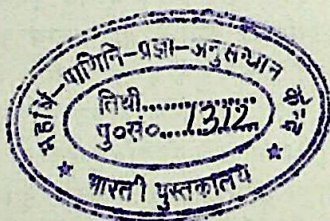 महर्षि-पाणिनि-प्रज्ञा-अनुसन्धान
तिथी..................
पु०सं०....1312....
★ भारती पुस्तकालय ★